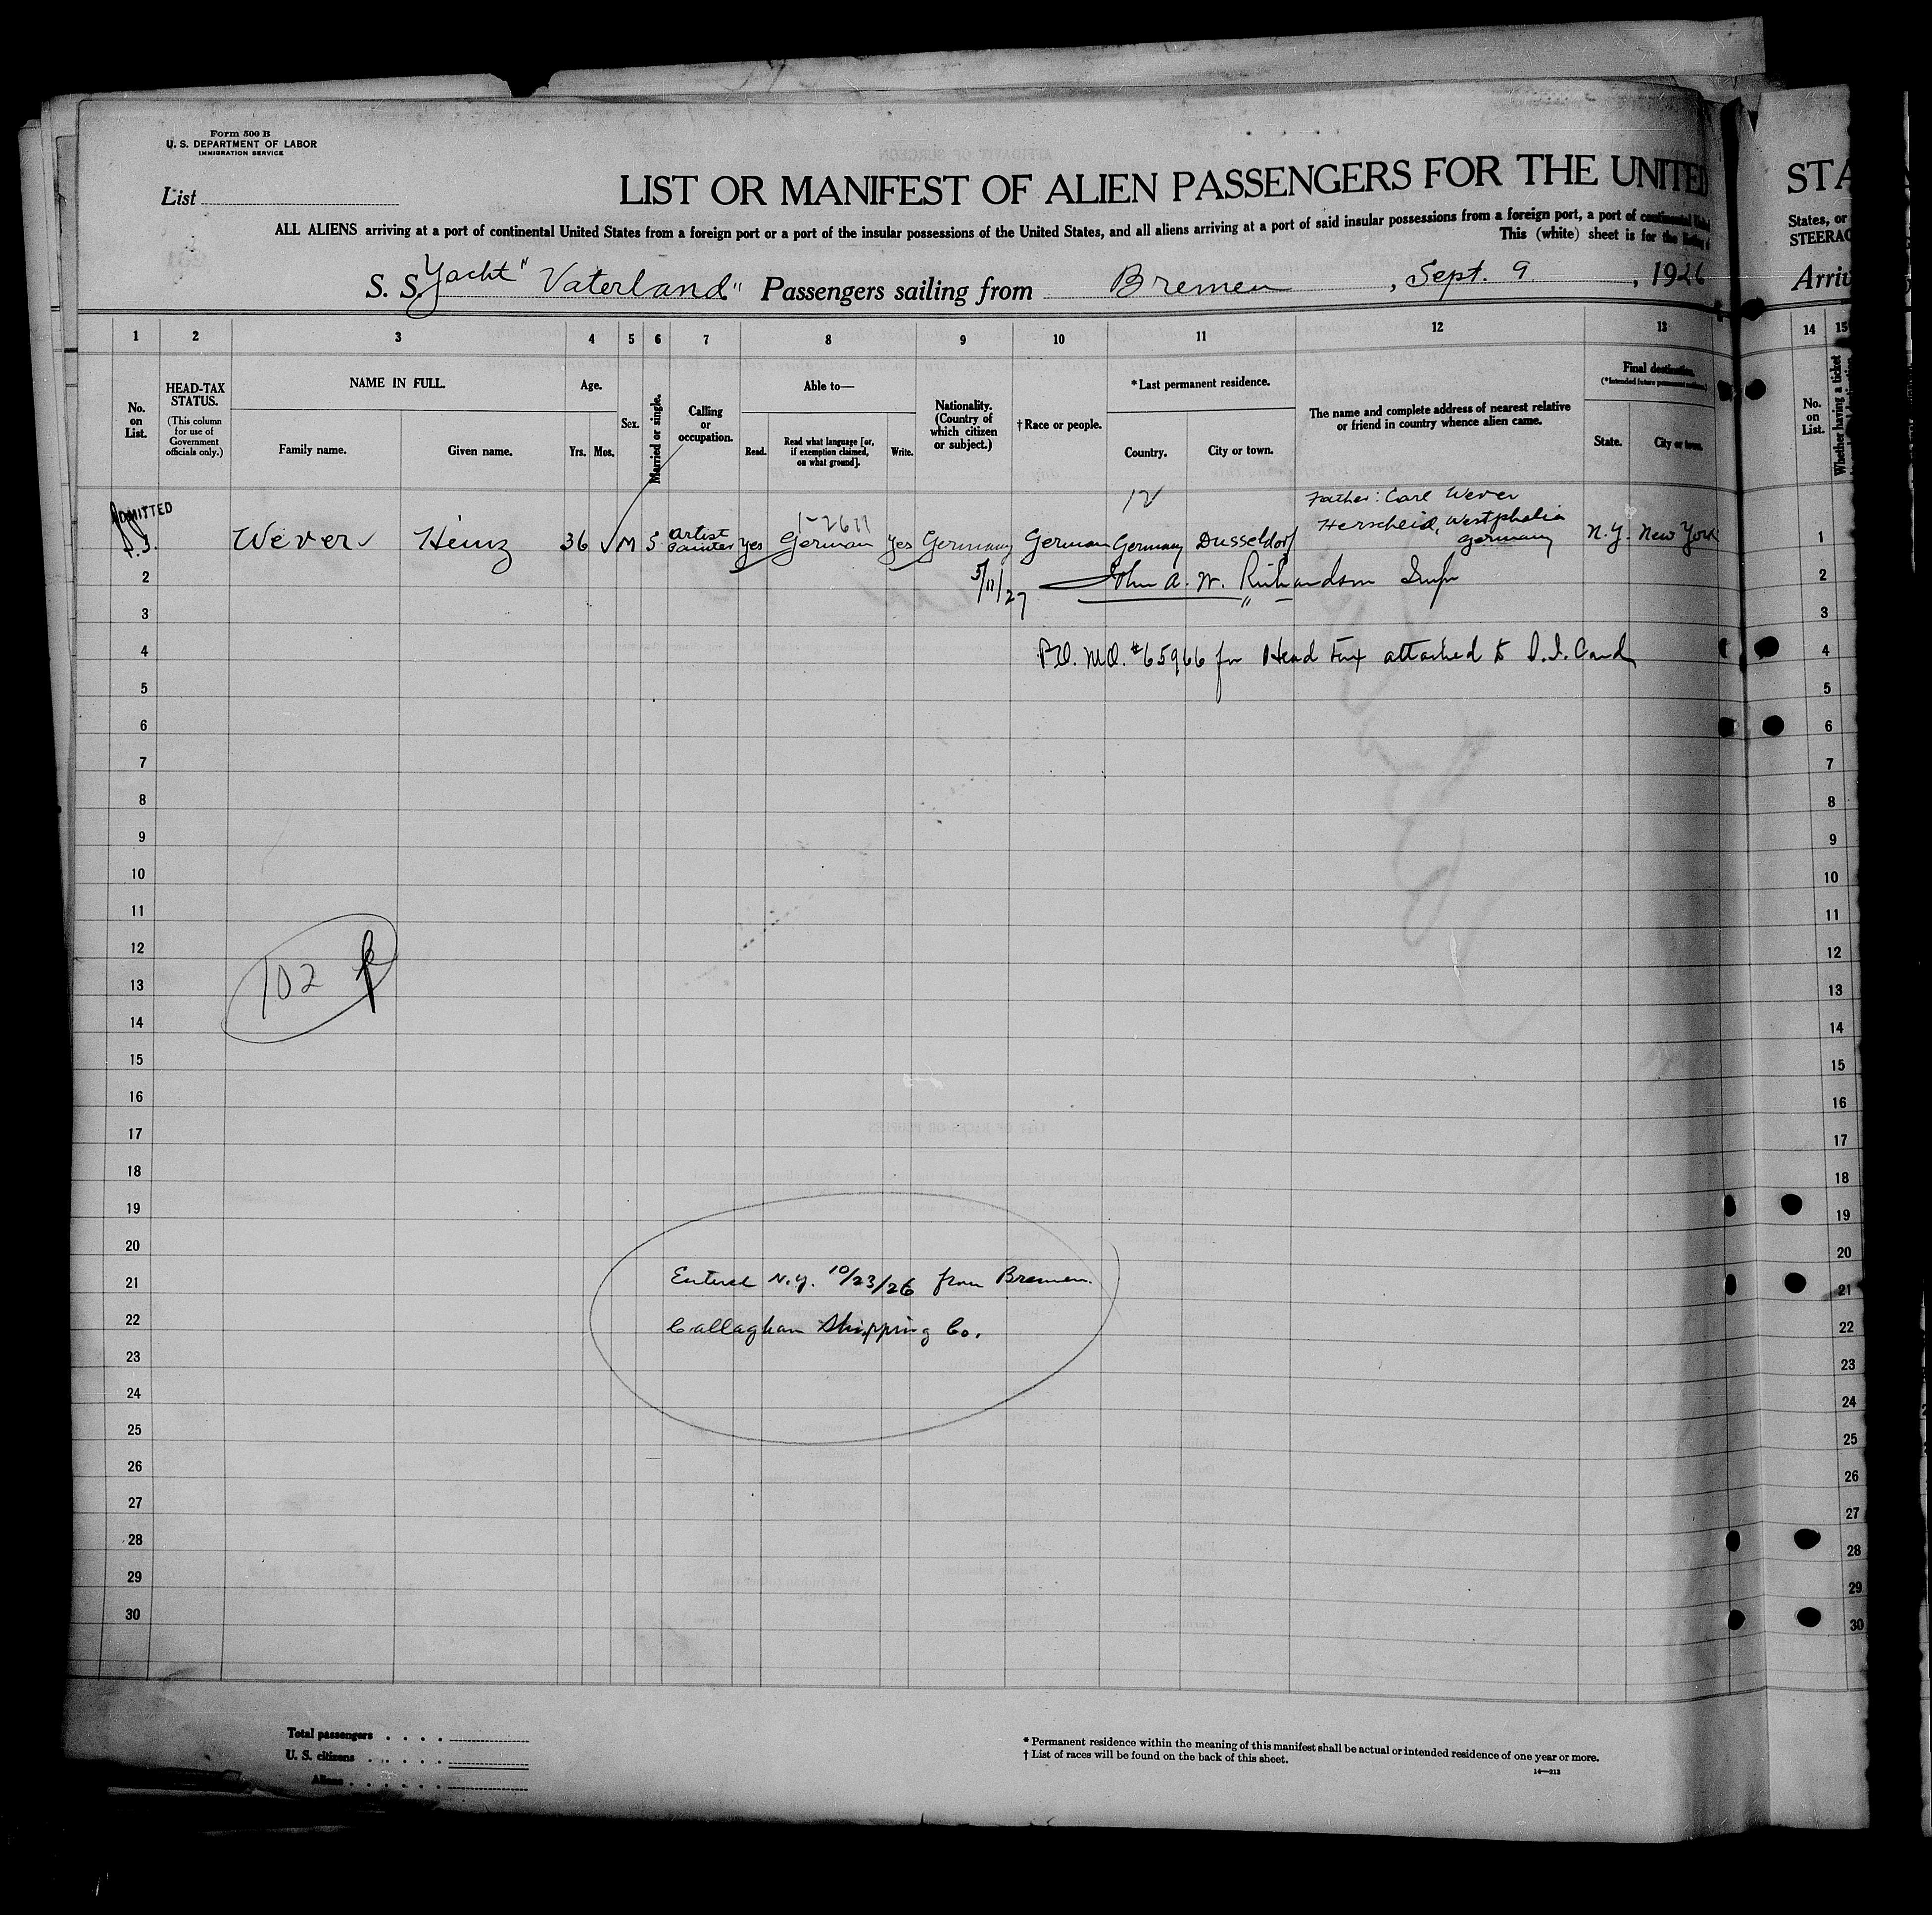 Form 500 B
U. S. DEPARTMENT OF LABOR
IMMIGRATION SERVICE
List
LIST OR MANIFEST OF ALIEN PASSENGERS FOR THE UNITED
ALL ALIENS arriving at a port of continental United States from a foreign port or a port of the insular possessions of the United States, and all aliens arriving at a port of said insular possessions from a foreign port, a port of continental
This (white) sheet is for the
S. S. Yacht "Vaterland" Passengers sailing from Bremen, Sept. 9, 1926
STA
States, or
STEERAG
Arriv
1 2 3 4 5 6 7 8 9 10 11 12 13 14 15
No. on List.
HEAD-TAX STATUS.
(This column for use of Government officials only.)
NAME IN FULL.
Family name. Given name.
Age.
Yrs. Mos.
Sex.
Married or single.
Calling or occupation.
Able to—
Read. Read what language [or, if exemption claimed, on what ground]. Write.
Nationality. (Country of which citizen or subject.)
† Race or people.
*Last permanent residence.
Country. City or town.
The name and complete address of nearest relative or friend in country whence alien came.
Final destination.
(*Intended future permanent residence.)
State. City or town.
No. on List.
Whether having a ticket
12
Father: Carl Wever
ADMITTED
Wever Heinz 36 M S Artist Painter yes German yes Germany German Germany Dusseldorf Herscheid, Westphalia Germany N.Y. New York 1
2 5/11/27 John A. W. Richardson Insp 2
3 3
4 P.O. M.O. #65966 for Head Tax attached to S.I. Card 4
5 5
6 6
7 7
8 8
9 9
10 10
11 11
12 12
13 102 13
14 14
15 15
16 16
17 17
18 18
19 19
20 20
21 Entered N.Y. 10/23/26 from Bremen. 21
22 Callaghan Shipping Co. 22
23 23
24 24
25 25
26 26
27 27
28 28
29 29
30 30
Total passengers
U. S. citizens
Aliens
* Permanent residence within the meaning of this manifest shall be actual or intended residence of one year or more.
† List of races will be found on the back of this sheet.
14—213